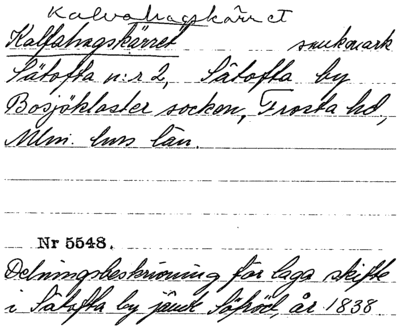 Kalvahagskärret
Kalfahagskärret
Sätofta n:r 2, Sätofta by
Bosjökloster socken, Frosta hd,
Mlm. hus län.
Nr 5548.
Delningsbeskrivning för laga skifte
i Sätofta by jämt år 1838